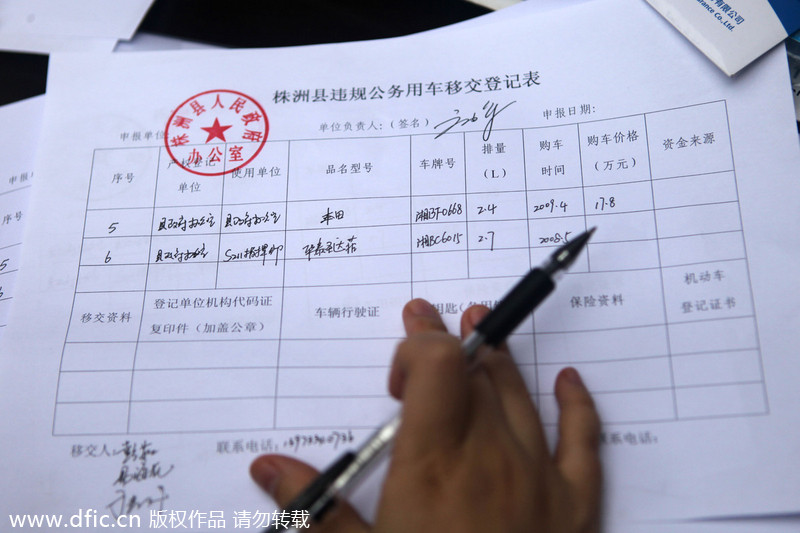 有限公司
rance Co., Ltd.
株洲县违规公务用车移交登记表
申报单位
单位负责人：（签名）
申报日期：
株洲县人民政府
办公室
序号 产权登记单位 使用单位 品名型号 车牌号 排量（L） 购车时间 购车价格（万元） 资金来源
5 县政府办公室 县政府办公室 丰田 湘BF0668 2.4 2009.4 17.8
6 县政府办公室 S211指挥部 华泰圣达菲 湘BC6015 2.7 2008.5
移交资料 登记单位机构代码证复印件（加盖公章） 车辆行驶证 钥匙 保险资料 机动车登记证书
移交人： 联系电话： 电话：
申报
序号
5
6
www.dfic.cn 版权作品 请勿转载